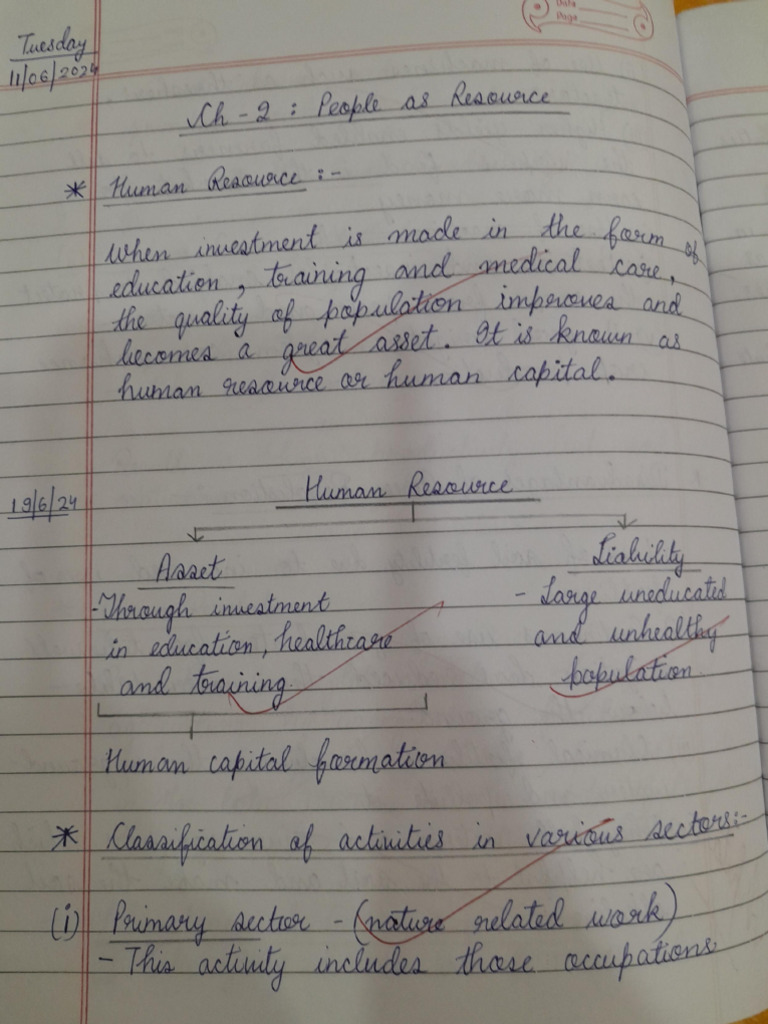 Date
Page
Tuesday
11/06/2024
Ch - 2 : People as Resource
* Human Resource :-
When investment is made in the form of
education, training and medical care,
the quality of population improves and
becomes a great asset. It is known as
human resource or human capital.
19/6/24
Human Resource
Asset
- Through investment
in education, healthcare
and training.
Human capital formation
Liability
- Large uneducated
and unhealthy
population.
* Classification of activities in various sectors:-
(i) Primary sector - (nature related work)
- This activity includes those occupations